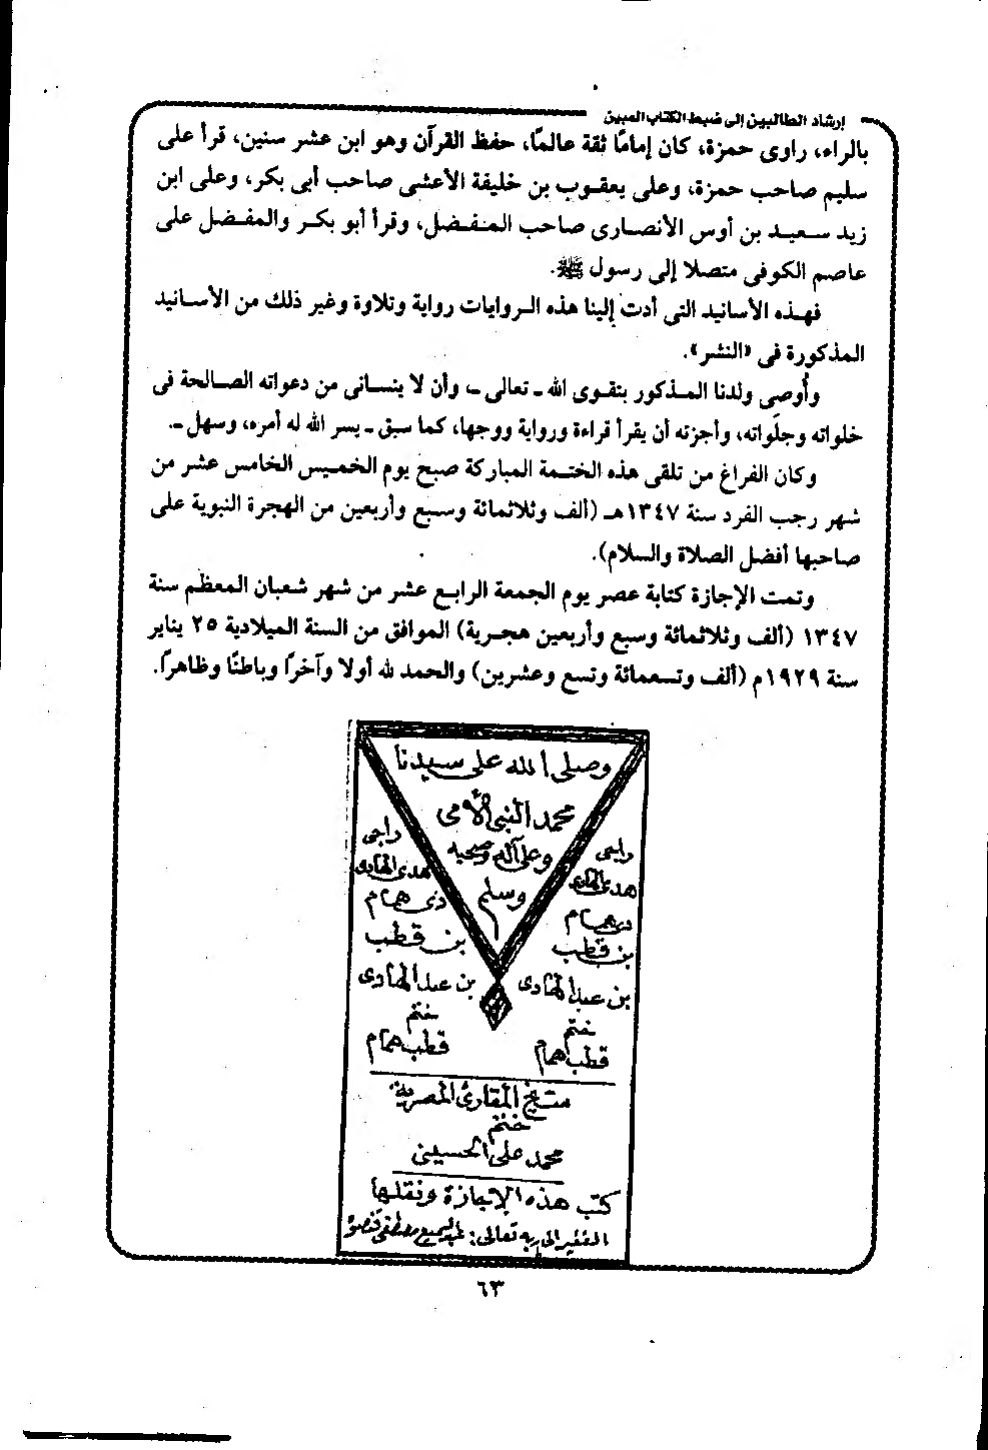 إرشاد الطالبين إلى ضبط الكتاب المبين
بالراء، راوى حمزة، كان إمامًا ثقة عالمًا، حفظ القرآن وهو ابن عشر سنين، قرأ على
سليم صاحب حمزة، وعلى يعقوب بن خليفة الأعشى صاحب أبى بكر، وعلى ابن
زيد سعيد بن أوس الأنصارى صاحب المفضل، وقرأ أبو بكر والمفضل على
عاصم الكوفى متصلا إلى رسول ﷺ.
فهذه الأسانيد التى أدت إلينا هذه الروايات رواية وتلاوة وغير ذلك من الأسانيد
المذكورة فى «النشر».
وأُوصى ولدنا المذكور بتقوى الله ـ تعالى ـ، وأن لا ينسانى من دعواته الصالحة فى
خلواته وجلَواته، وأجزته أن يقرأ قراءة ورواية ووجها، كما سبق ـ يسر الله له أمره، وسهل ـ.
وكان الفراغ من تلقى هذه الختمة المباركة صبح يوم الخميس الخامس عشر من
شهر رجب الفرد سنة ١٣٤٧هـ (ألف وثلاثمائة وسبع وأربعين من الهجرة النبوية على
صاحبها أفضل الصلاة والسلام).
وتمت الإجازة كتابة عصر يوم الجمعة الرابع عشر من شهر شعبان المعظم سنة
١٣٤٧ (ألف وثلاثمائة وسبع وأربعين هجرية) الموافق من السنة الميلادية ٢٥ يناير
سنة ١٩٢٩م (ألف وتسعمائة وتسع وعشرين) والحمد لله أولا وآخرًا وباطنًا وظاهرًا.
وصلى الله على سيدنا
محمد النبى الأمى
وعلى آله وصحبه
وسلم
راجى
هدى الهادى
ذى همام
بن قطب
بن عبد الهادى
ختم
قطب همام
راجى
هدى الهادى
ذى همام
بن قطب
بن عبد الهادى
ختم
قطب همام
شيخ المقارئ المصرية
ختم
محمد على الحسينى
كتب هذه الإجازة ونقلها
الفقير إلى ربه تعالى: عبد السميع مصطفى
٦٣